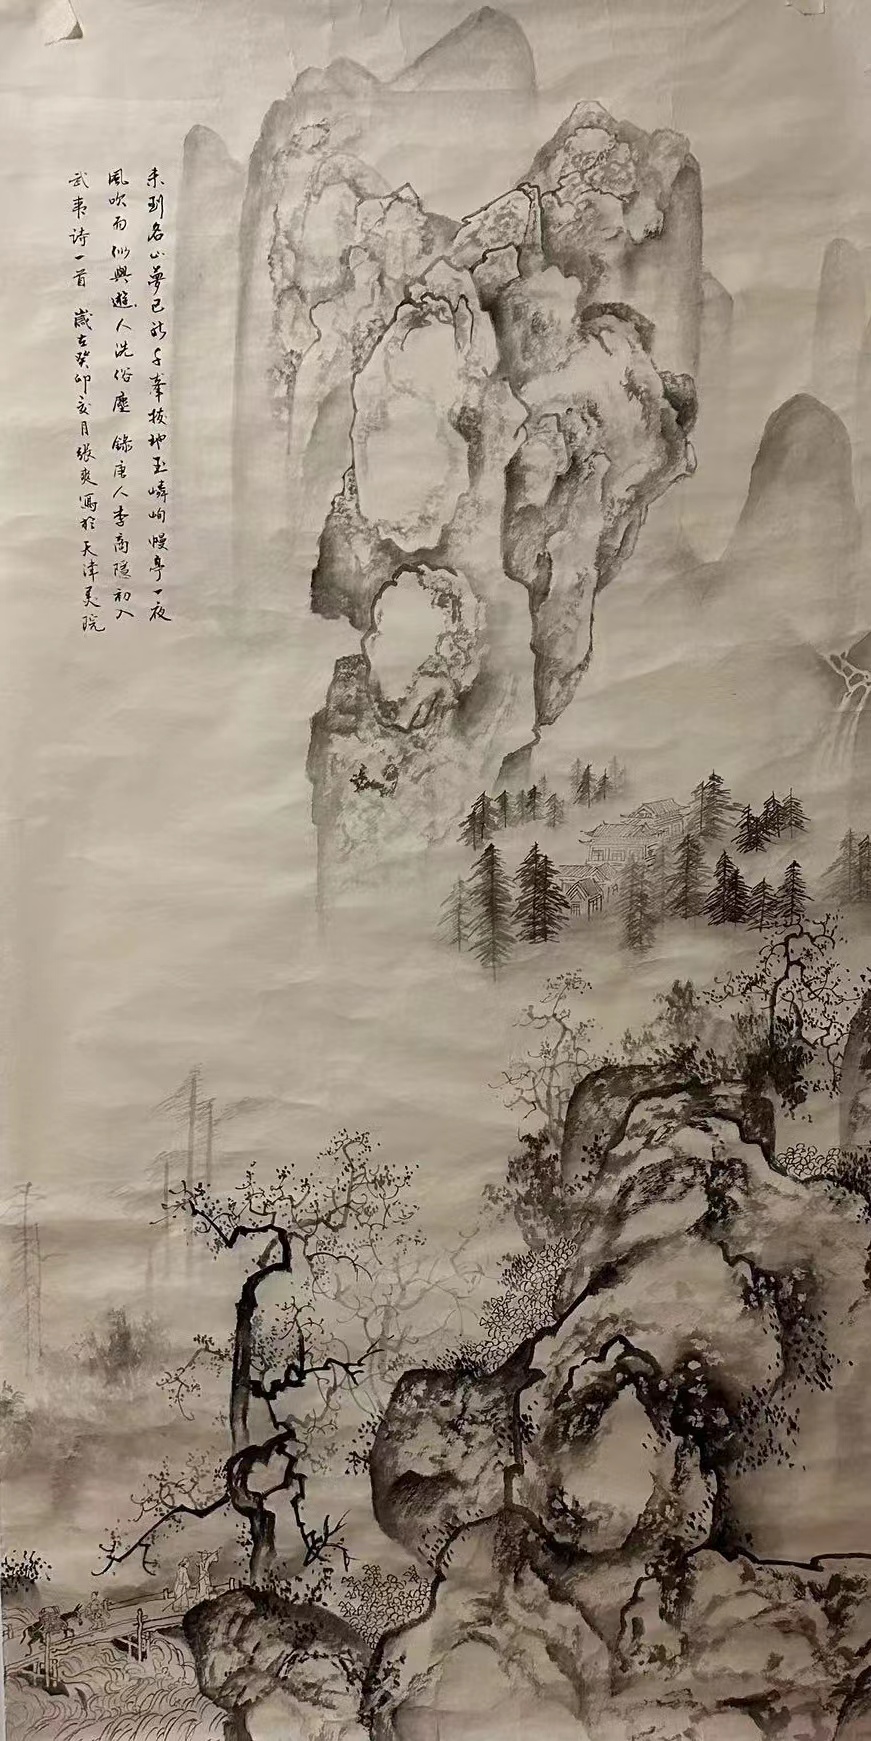 未到名山梦已新千峯拔地玉嶙峋幔亭一夜
風吹雨似與遊人洗俗塵 錄唐人李商隱初入
武夷诗一首 歲在癸卯亥月張爽寫於天津美院